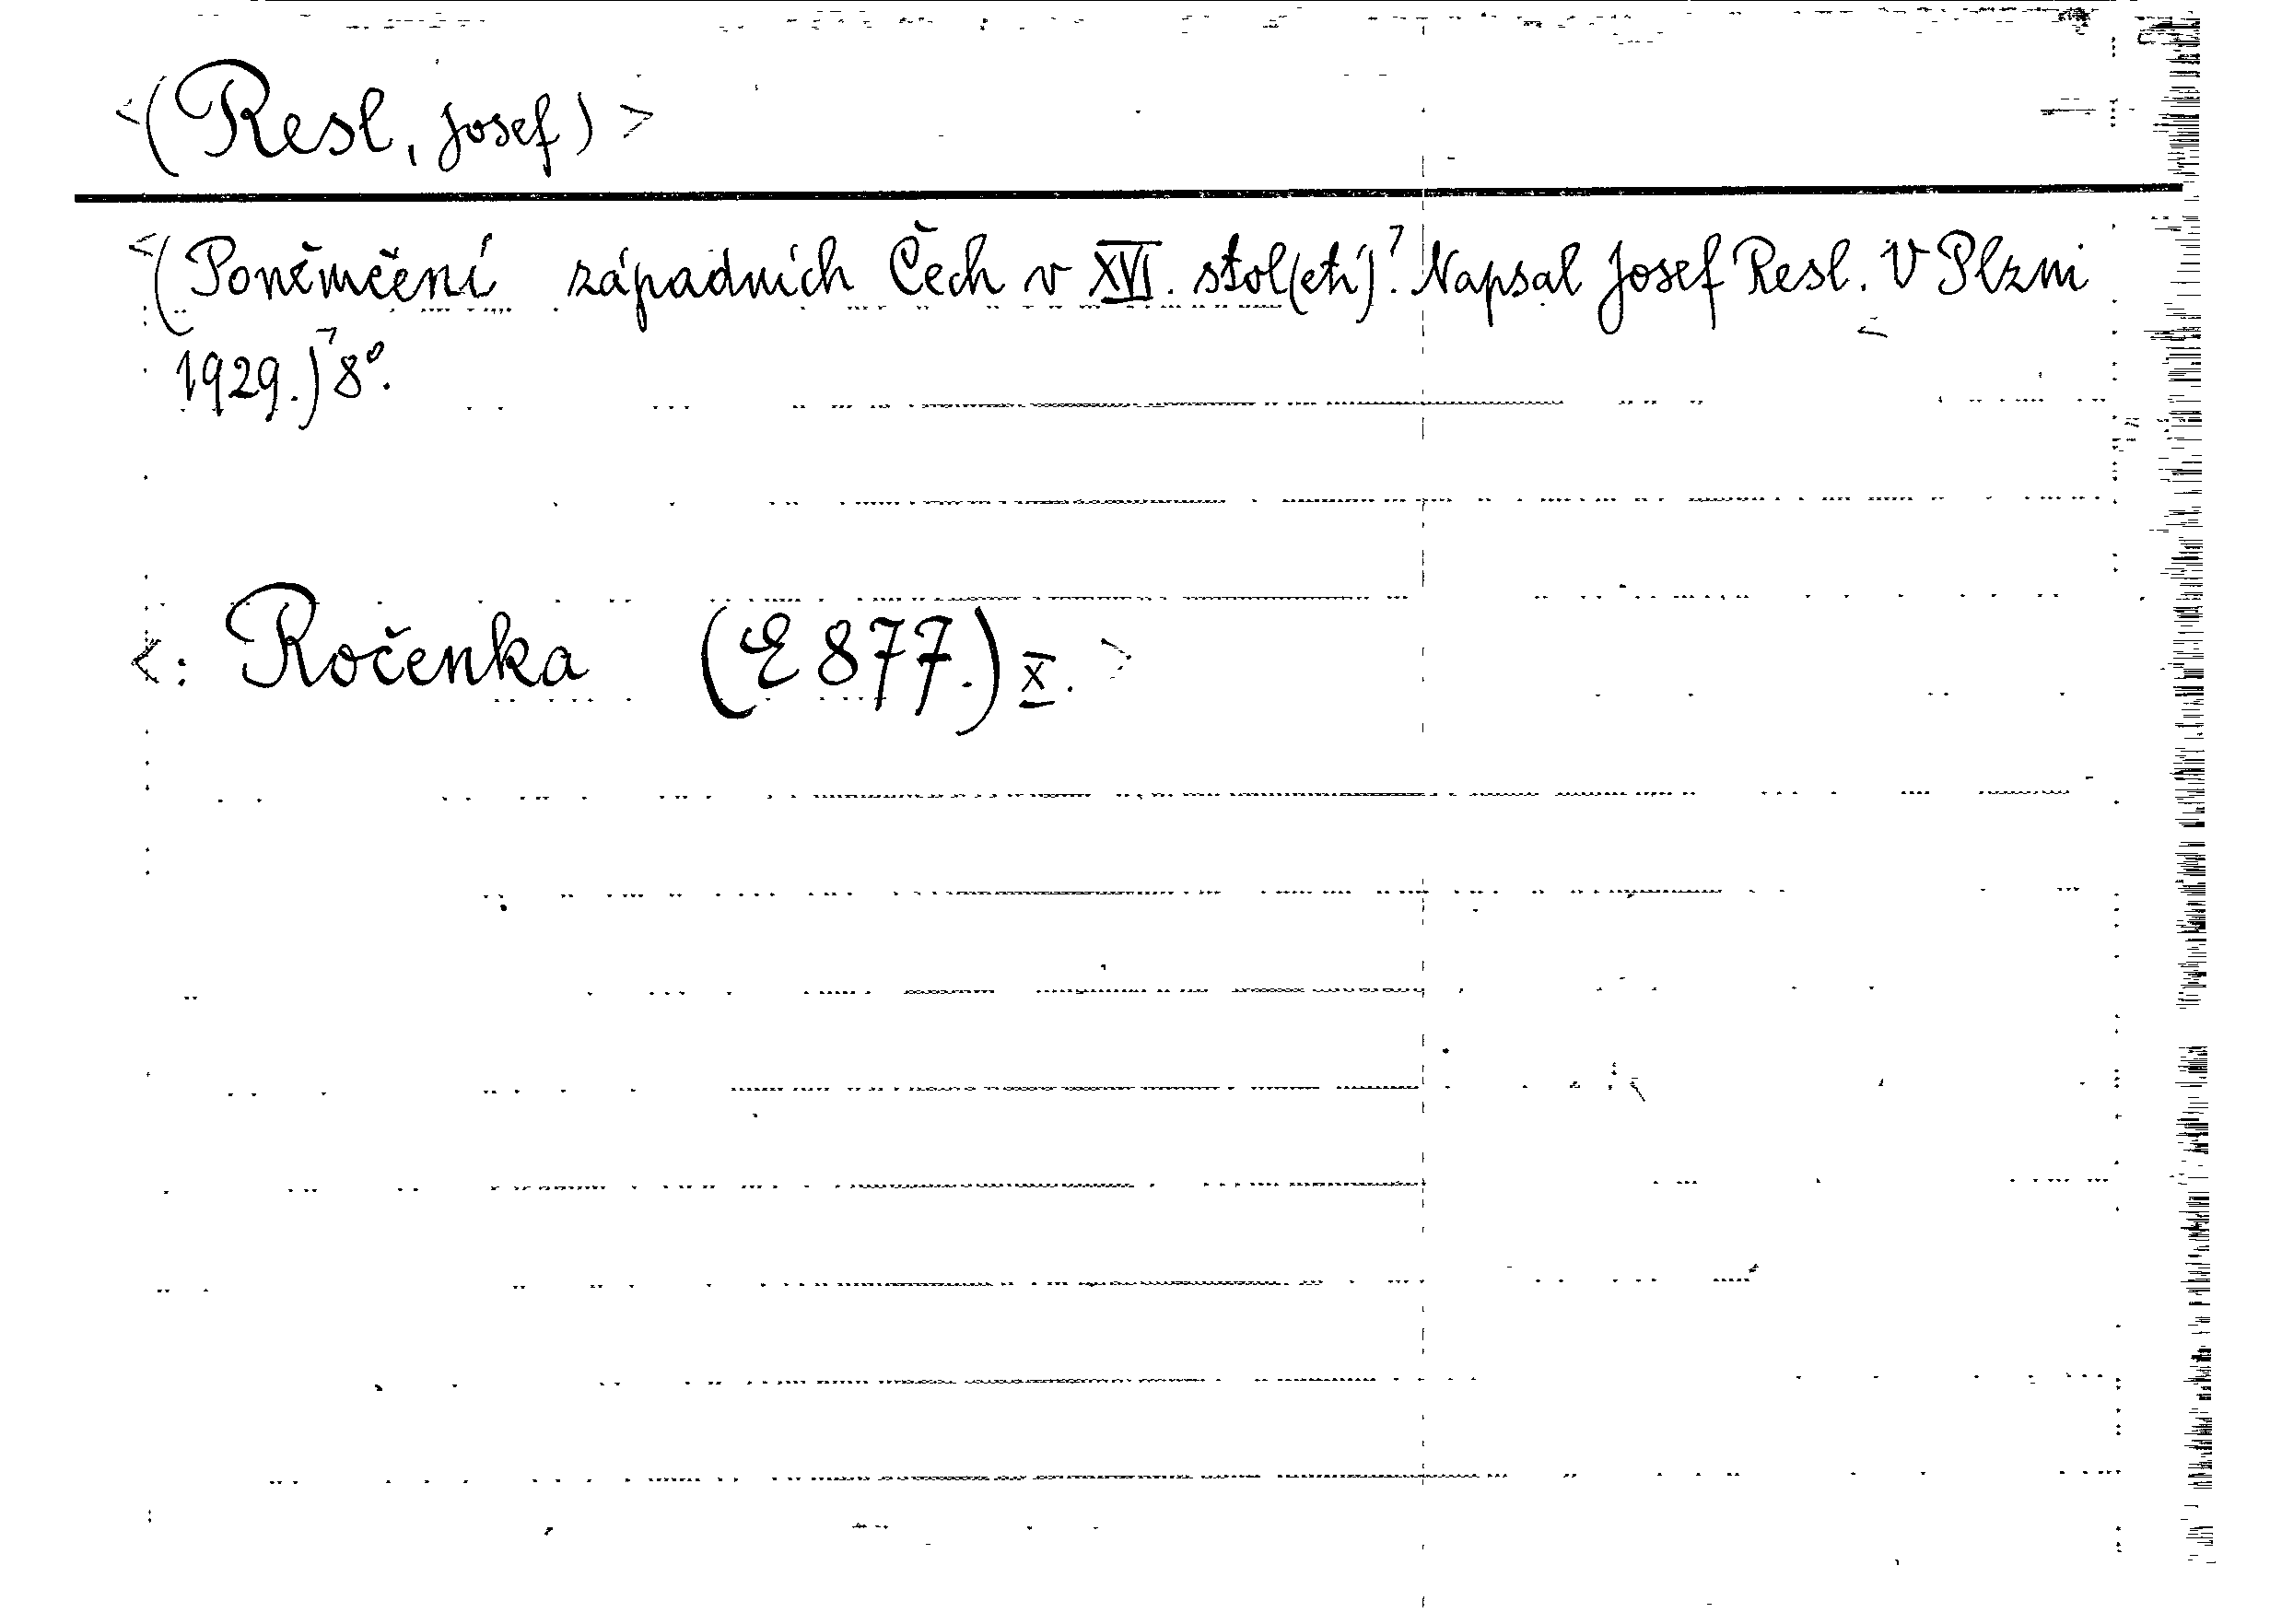 <(Resl, Josef)>
<(Poněmčení západních Čech v XVI. stol(etí)>. Napsal Josef Resl. <V Plzni
1929.)> 8°.
<: Ročenka (E 877.) X.>